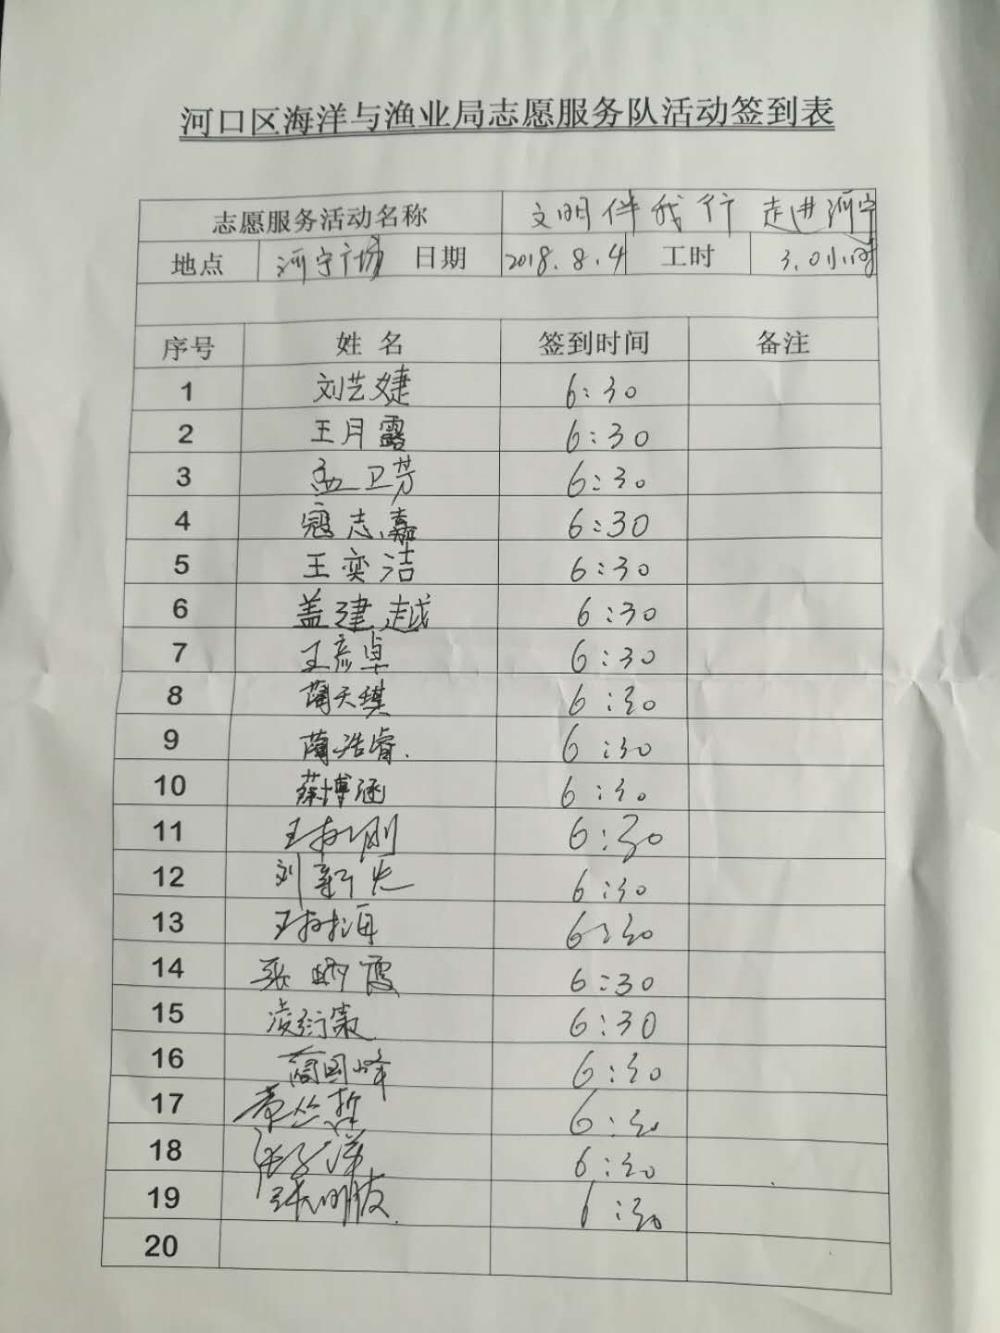 河口区海洋与渔业局志愿服务队活动签到表
志愿服务活动名称 文明伴我行 走进河宁
地点 河宁广场 日期 2018.8.4 工时 3.0小时
序号 姓名 签到时间 备注
1 刘艺婕 6:30
2 王月露 6:30
3 孟卫芳 6:30
4 寇志嘉 6:30
5 王奕洁 6:30
6 盖建越 6:30
7 王彦卓 6:30
8 蔺天祺 6:30
9 蔺浩睿. 6:30
10 蔡博涵 6:30
11 王 刚 6:30
12 刘新 6:30
13 王 海 6:30
14 张 霞 6:30
15 凌衍 6:30
16 蔺国峰 6:30
17 6:30
18 张子洋 6:30
19 张明 6:30
20